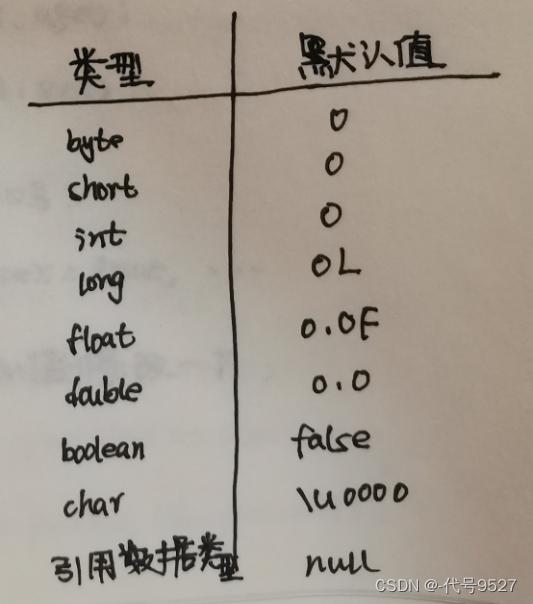 类型 默认值
byte 0
short 0
int 0
long 0L
float 0.0F
double 0.0
boolean false
char \u0000
引用数据类型 null
CSDN @-代号9527